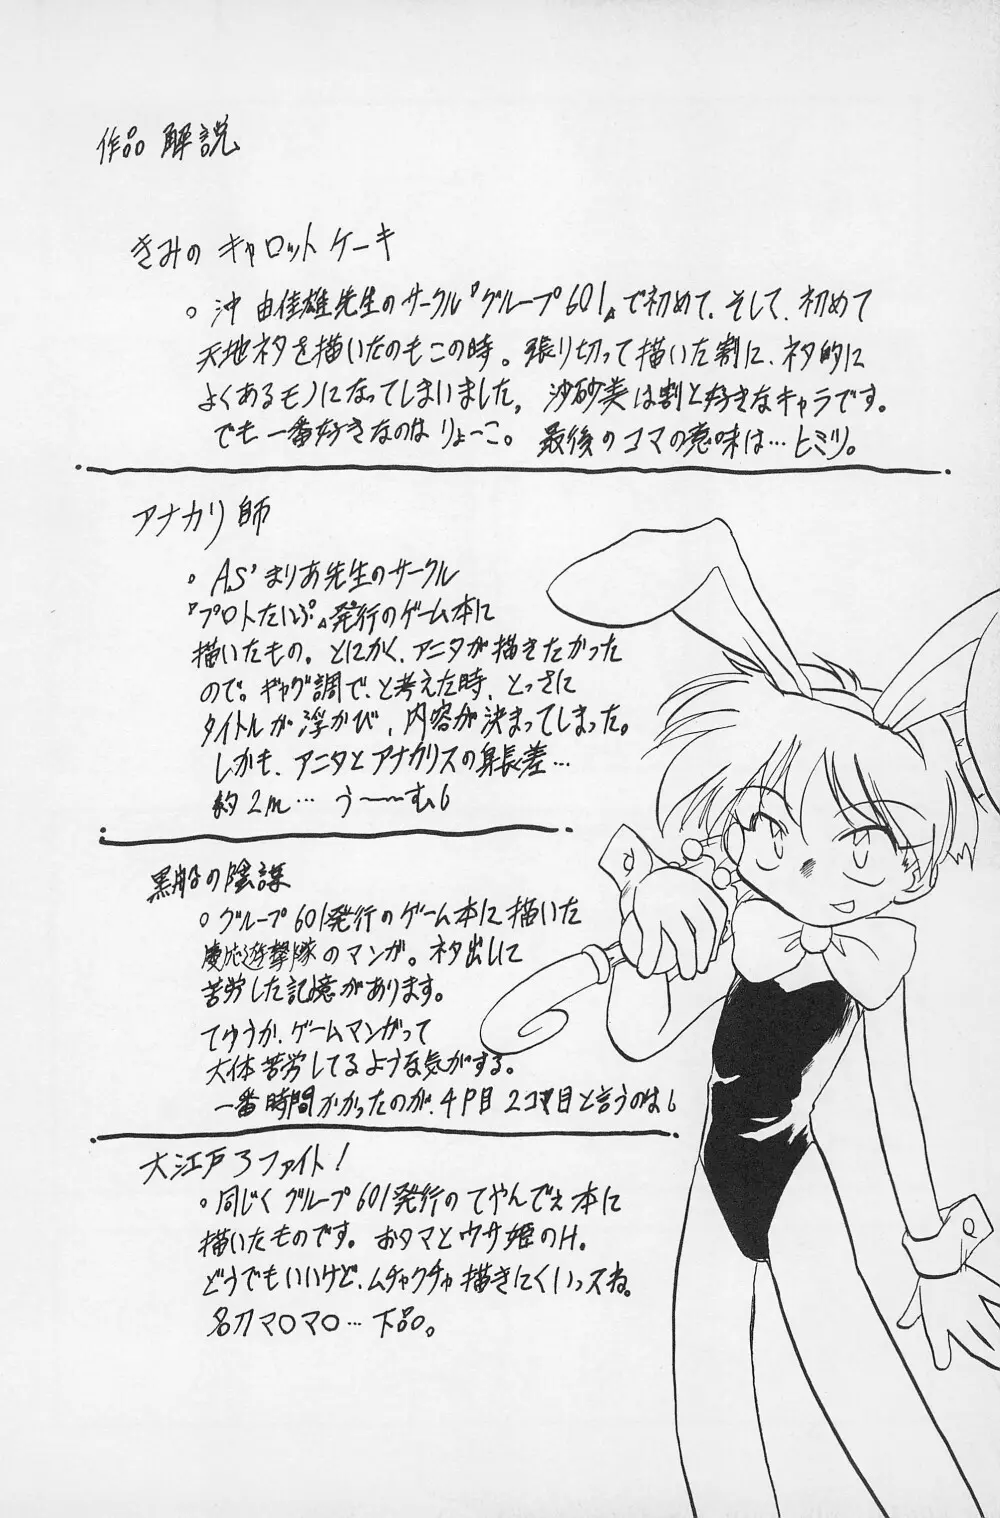 作品 解説
きみの キャロット ケーキ
○ 沖 由佳雄先生のサークル『グループ601』で初めて、そして、初めて
天地ネタを描いたのもこの時。張り切って描いた割に、ネタ的に
よくあるモノになってしまいました。沙砂美は割と好きなキャラです。
でも一番好きなのは りょーこ。最後のコマの意味は…ヒミツ。
アナカリ師
○ A.S'まりあ先生のサークル
『プロトたいぷ』発行のゲーム本に
描いたもの。とにかく、アニタが描きたかった
ので。ギャグ調で、と考えた時、とっさに
タイトルが浮かび、内容が決まってしまった。
しかも、アニタとアナカリスの身長差…
約2m… う〜〜む。
黒船の陰謀
○グループ601発行のゲーム本に描いた
慶応遊撃隊のマンガ。ネタ出しに
苦労した記憶があります。
てゆうか、ゲームマンガって
大体苦労してるような気がする。
一番時間かかったのが、4P目2コマ目と言うのは。
大江戸ろファイト!
○同じくグループ601発行のてやんでぇ本に
描いたものです。おタマとウサ姫のH。
どうでもいいけど、ムチャクチャ描きにくいっスね。
名刀マ○マ○…下品。